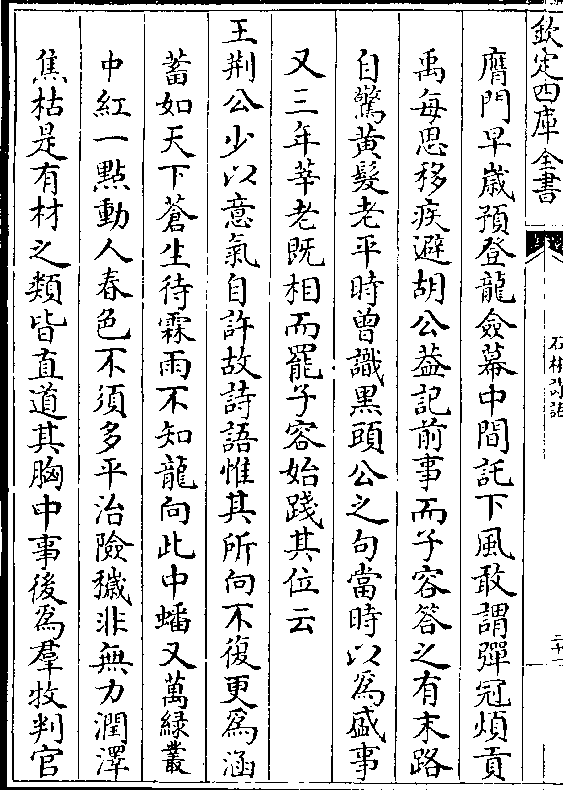 欽定四庫全書
石林詩話
二十一
膺門早歳預登龍儉幕中間託下風敢謂彈冠煩貢
禹每思移疾避胡公葢記前事而子容答之有末路
自驚黃髮老平時曾識黒頭公之句當時以為盛事
又三年莘老既相而罷子容始踐其位云
王荆公少以意氣自許故詩語惟其所向不復更為涵
蓄如天下蒼生待霖雨不知龍向此中蟠又萬緑叢
中紅一點動人春色不須多平治險穢非無力潤澤
焦枯是有材之類皆直道其胸中事後為羣牧判官